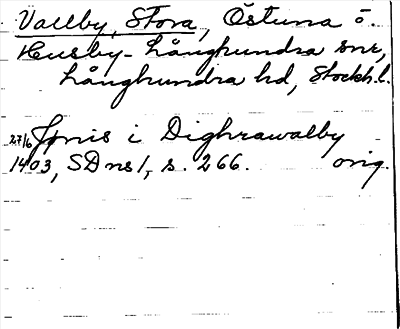 Vallby, Stora, Östuna ö.
Husby-Långhundra snr,
Långhundra hd, Stockh.l.
27/6 Jönis i Dighrawalby
1403, SDns 1, s. 266. orig.